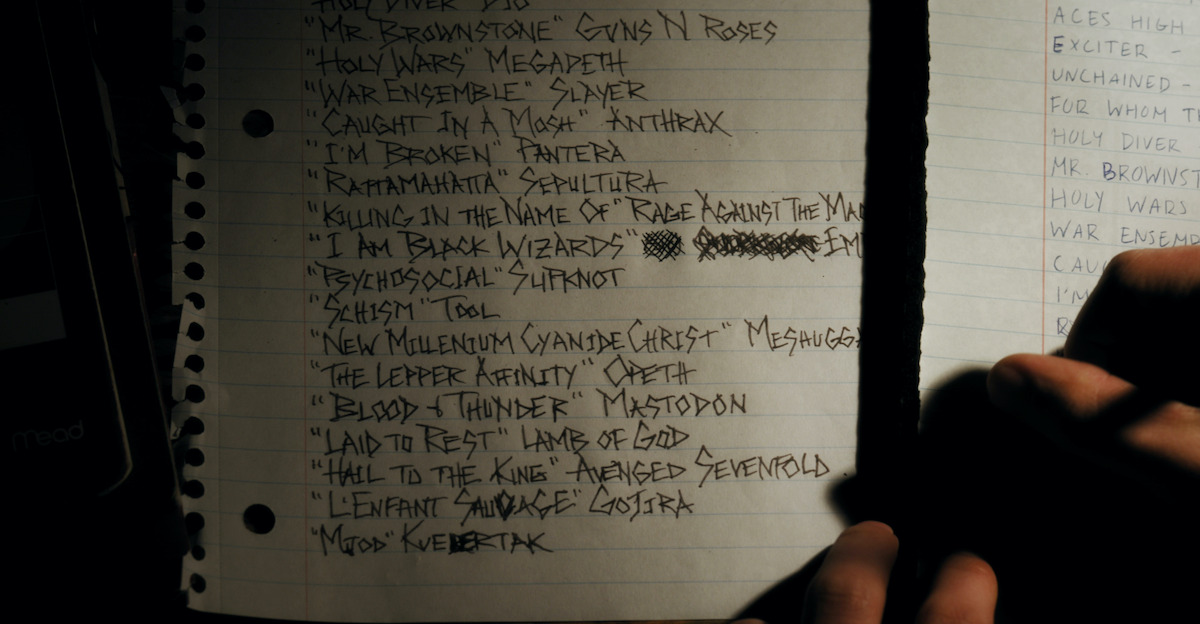 HOLY DIVER" DIO
"MR. BROWNSTONE" GUNS N ROSES
"HOLY WARS" MEGADETH
"WAR ENSEMBLE" SLAYER
"CAUGHT IN A MOSH" ANTHRAX
"I'M BROKEN" PANTERA
"RATTAMAHATTA" SEPULTURA
"KILLING IN THE NAME OF" RAGE AGAINST THE MAC
"I AM BLACK WIZARDS" EMP
"PSYCHOSOCIAL" SLIPKNOT
"SCHISM" TOOL
"NEW MILLENIUM CYANIDE CHRIST" MESHUGGA
"THE LEPPER AFFINITY" OPETH
"BLOOD & THUNDER" MASTODON
"LAID TO REST" LAMB OF GOD
"HAIL TO THE KING" AVENGED SEVENFOLD
"L'ENFANT SAUVAGE" GOJIRA
"MJOD" KVELERTAK
mead
ACES HIGH
EXCITER -
UNCHAINED -
FOR WHOM TH
HOLY DIVER
MR. BROWNST
HOLY WARS
WAR ENSEMB
CAU
I'M
R